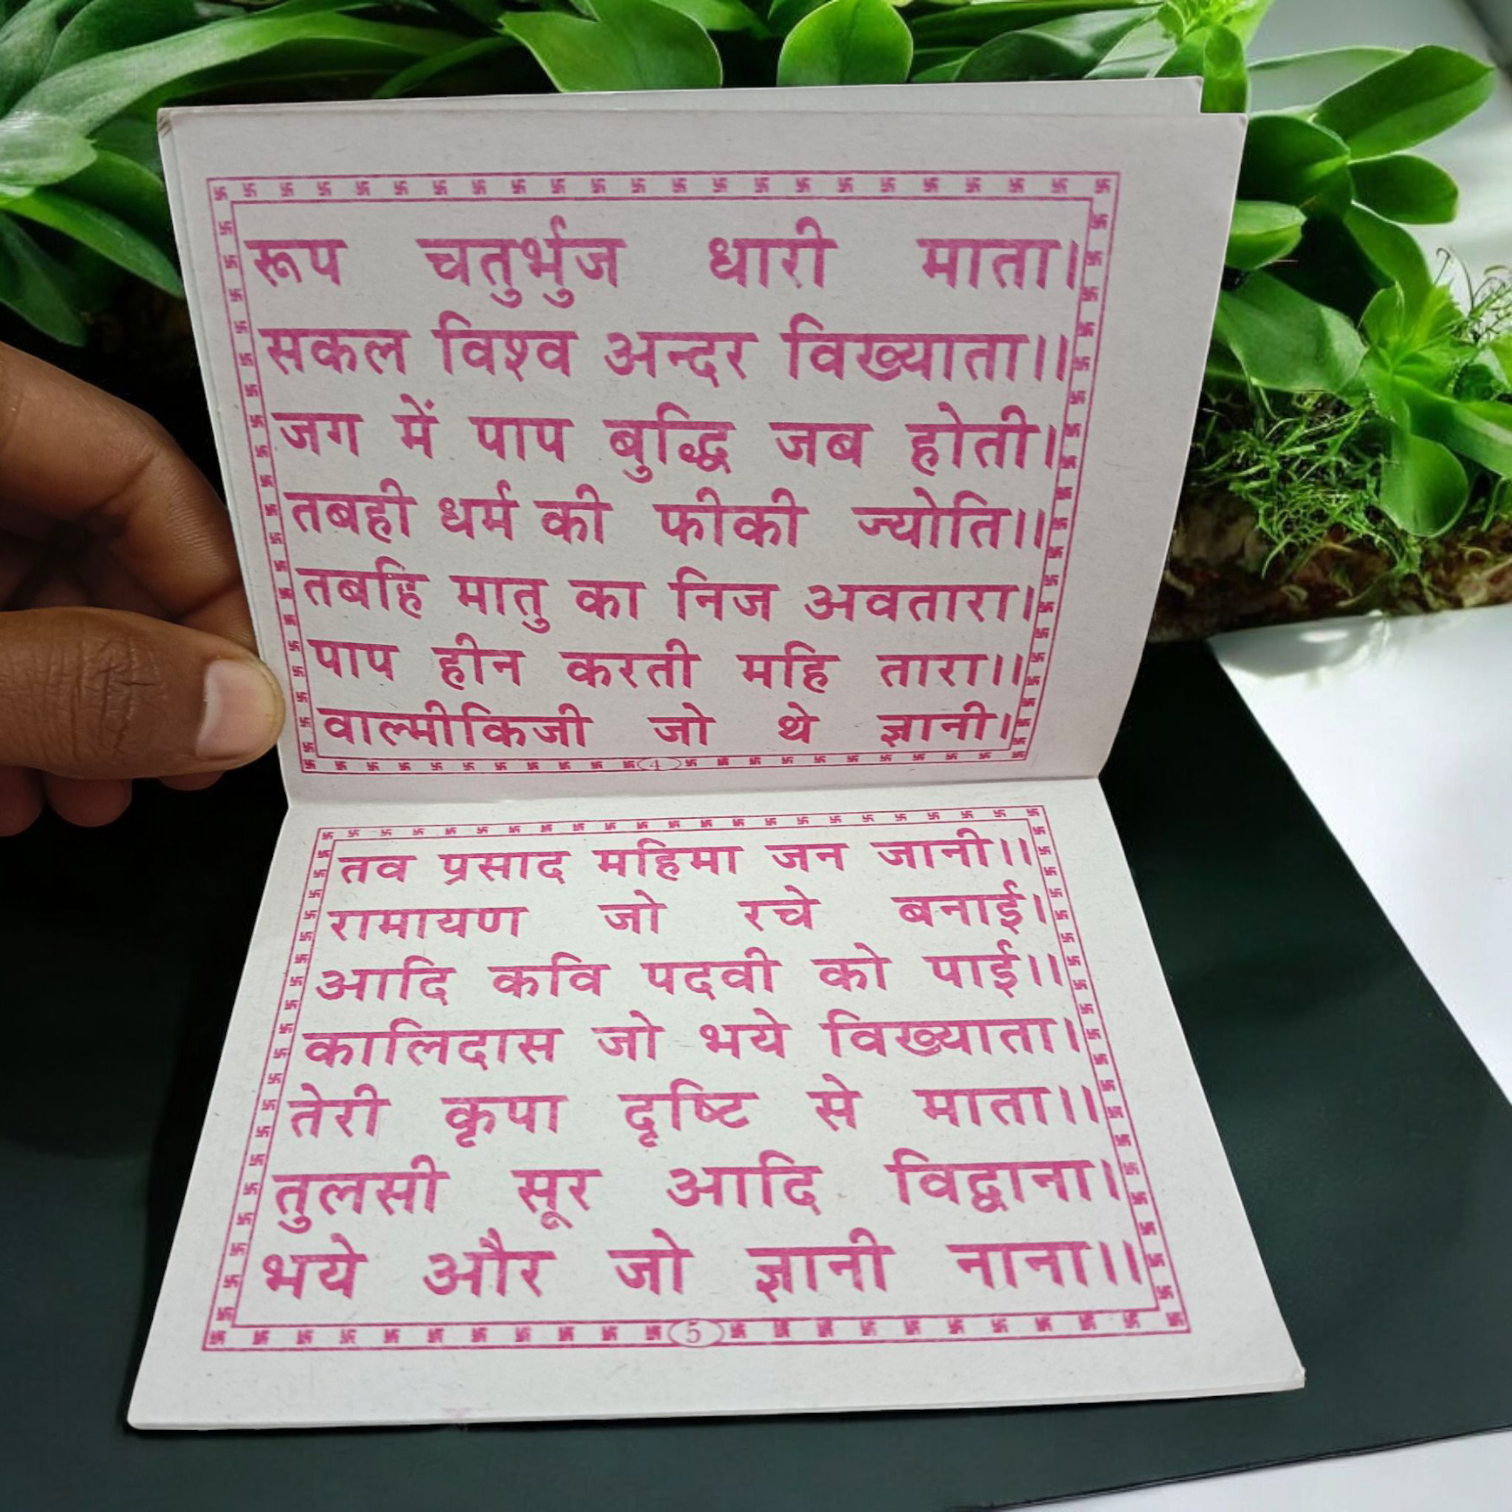 रूप चतुर्भुज धारी माता।
सकल विश्व अन्दर विख्याता।।
जग में पाप बुद्धि जब होती।
तबही धर्म की फीकी ज्योति।।
तबहि मातु का निज अवतारा।
पाप हीन करती महि तारा।।
वाल्मीकिजी जो थे ज्ञानी।
4
तव प्रसाद महिमा जन जानी।।
रामायण जो रचे बनाई।
आदि कवि पदवी को पाई।।
कालिदास जो भये विख्याता।
तेरी कृपा दृष्टि से माता।।
तुलसी सूर आदि विद्वाना।
भये और जो ज्ञानी नाना।।
5